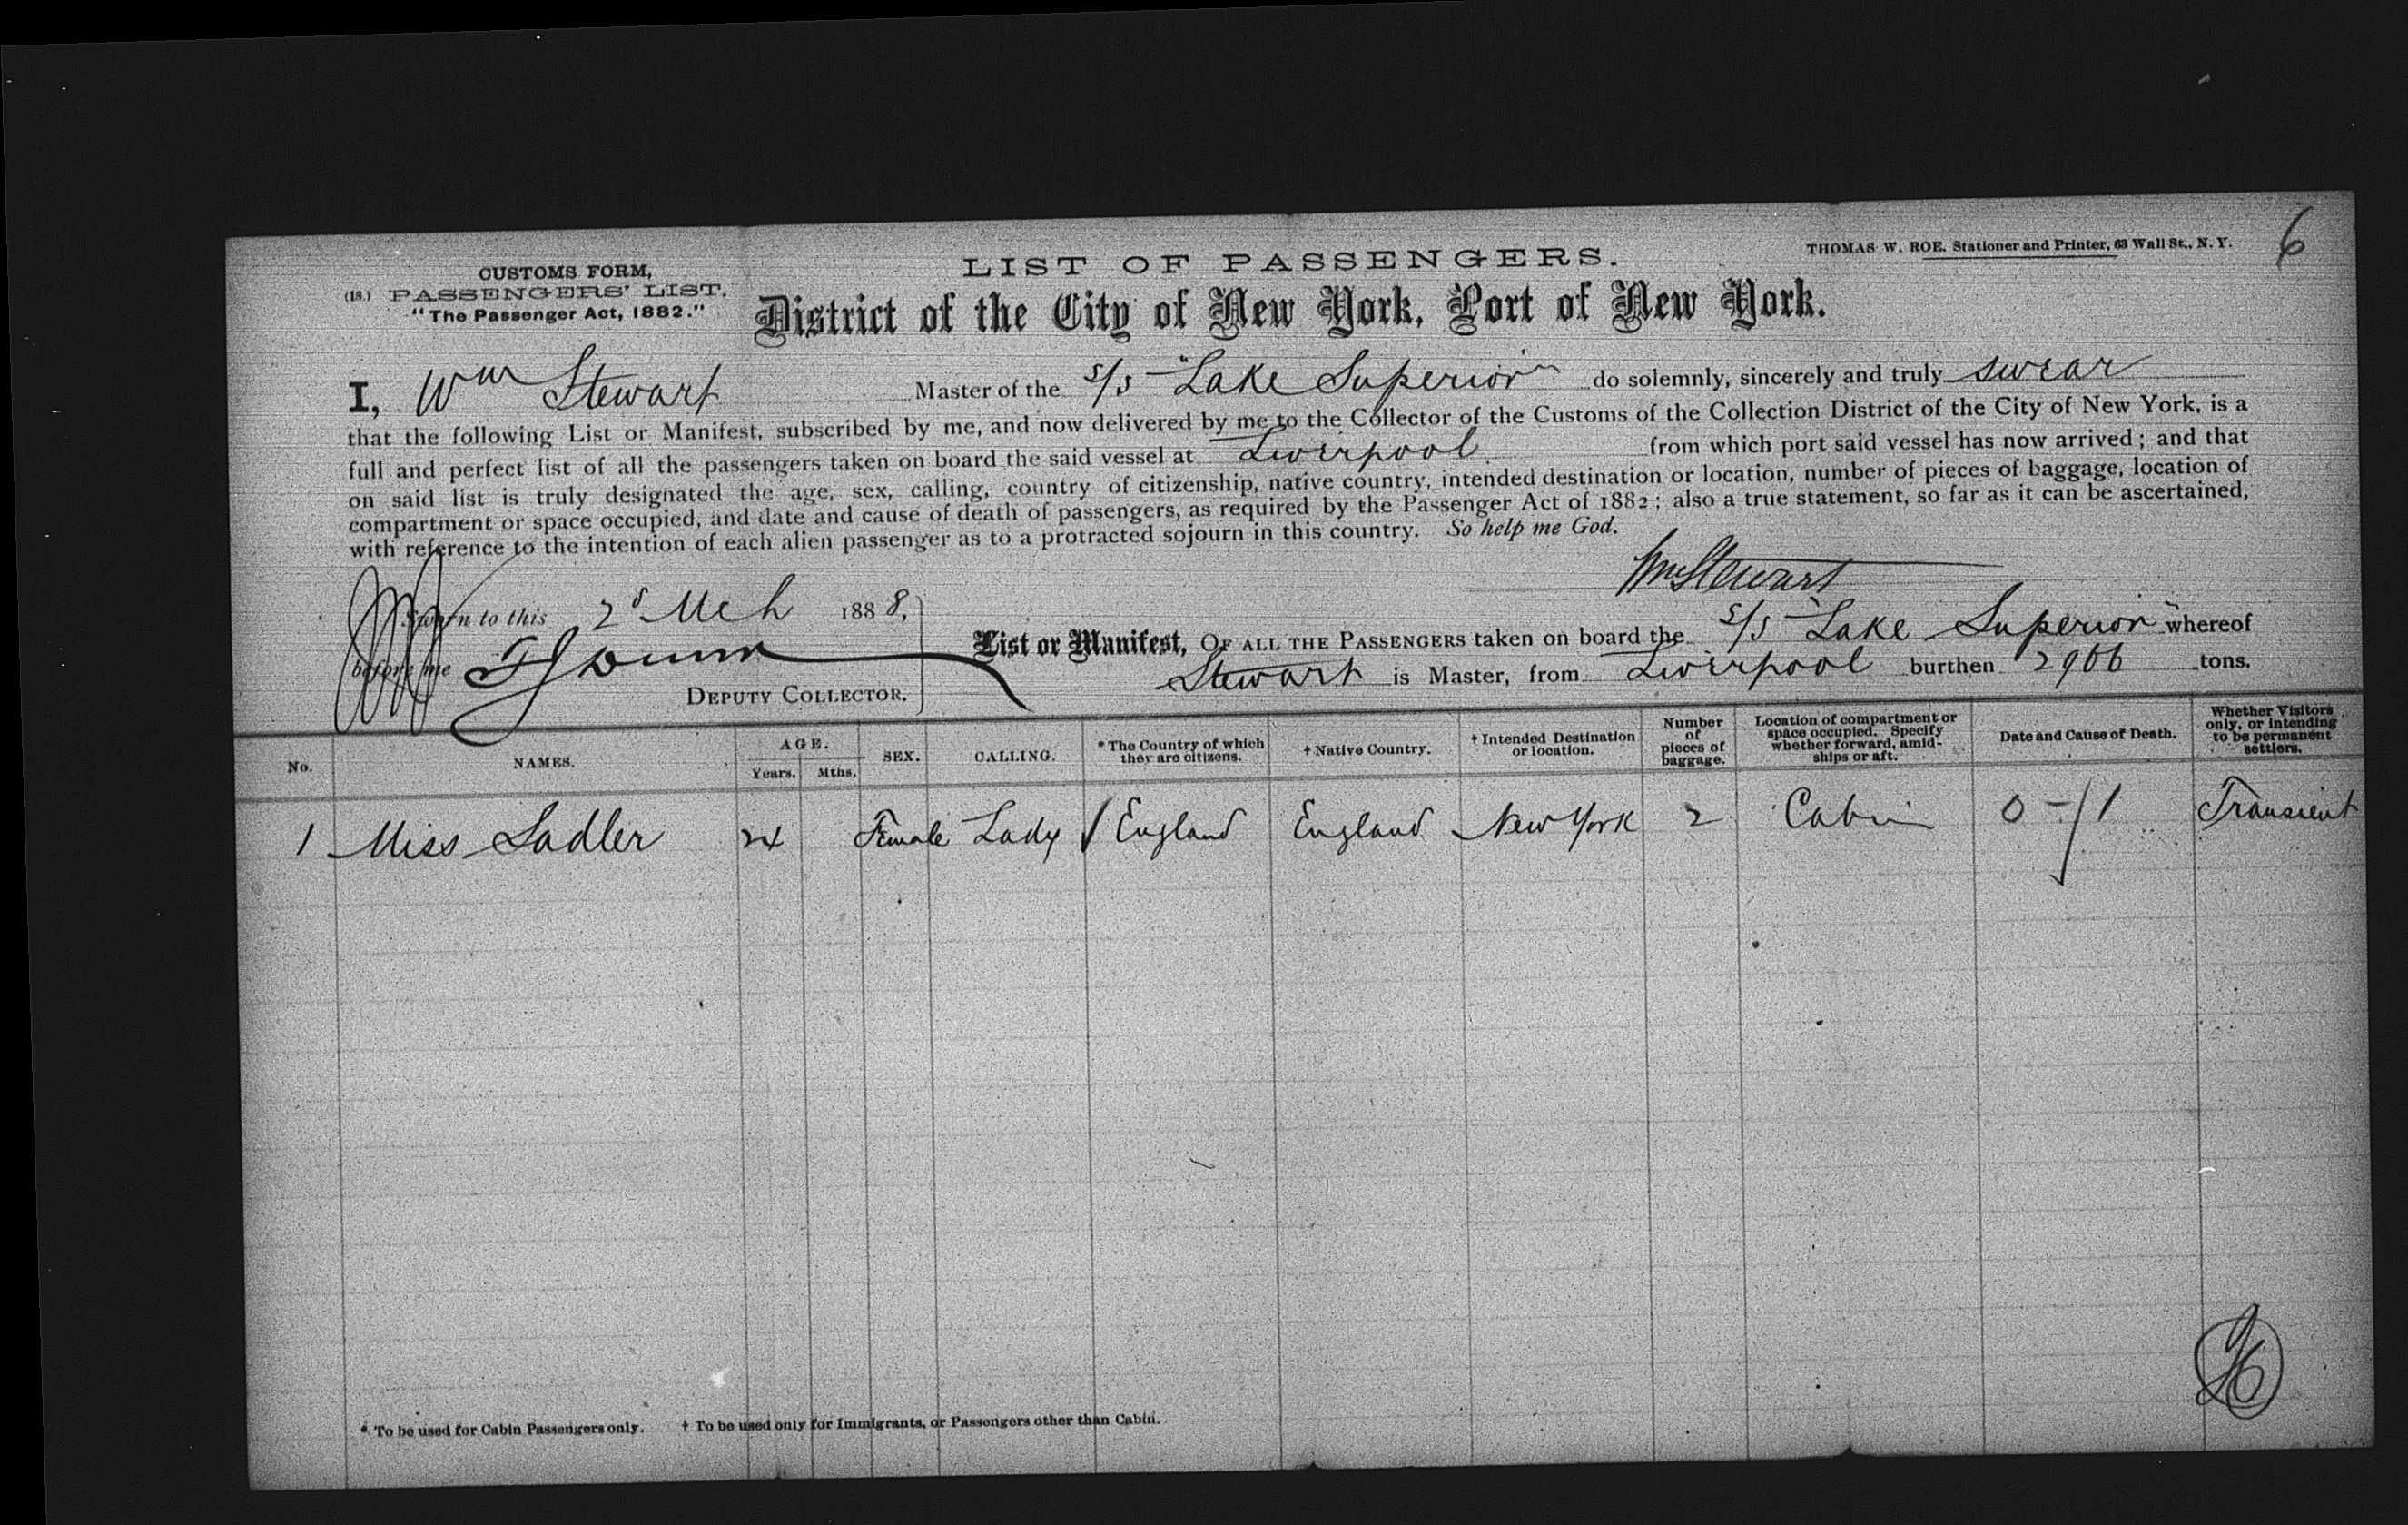 THOMAS W. ROE. Stationer and Printer, 63 Wall St., N. Y.
6
CUSTOMS FORM,
(18.) PASSENGERS' LIST.
"The Passenger Act, 1882."
LIST OF PASSENGERS.
District of the City of New York, Port of New York.
I, Wm Stewart Master of the s/s "Lake Superior" do solemnly, sincerely and truly swear
that the following List or Manifest, subscribed by me, and now delivered by me to the Collector of the Customs of the Collection District of the City of New York, is a
full and perfect list of all the passengers taken on board the said vessel at Liverpool from which port said vessel has now arrived; and that
on said list is truly designated the age, sex, calling, country of citizenship, native country, intended destination or location, number of pieces of baggage, location of
compartment or space occupied, and date and cause of death of passengers, as required by the Passenger Act of 1882; also a true statement, so far as it can be ascertained,
with reference to the intention of each alien passenger as to a protracted sojourn in this country. So help me God.
Wm Stewart
Sworn to this 2d Mch 1888,
before me
DEPUTY COLLECTOR.
List or Manifest, OF ALL THE PASSENGERS taken on board the s/s "Lake Superior" whereof
Stewart is Master, from Liverpool burthen tons.
No. NAMES. AGE. Years. Mths. SEX. CALLING. * The Country of which they are citizens. † Native Country. † Intended Destination or location. Number of pieces of baggage. Location of compartment or space occupied. Specify whether forward, amidships or aft. Date and Cause of Death. Whether Visitors only, or intending to be permanent settlers.
1 Miss Sadler 24 Female Lady England England New York 2 Cabin Transient
* To be used for Cabin Passengers only. † To be used only for Immigrants, or Passengers other than Cabin.